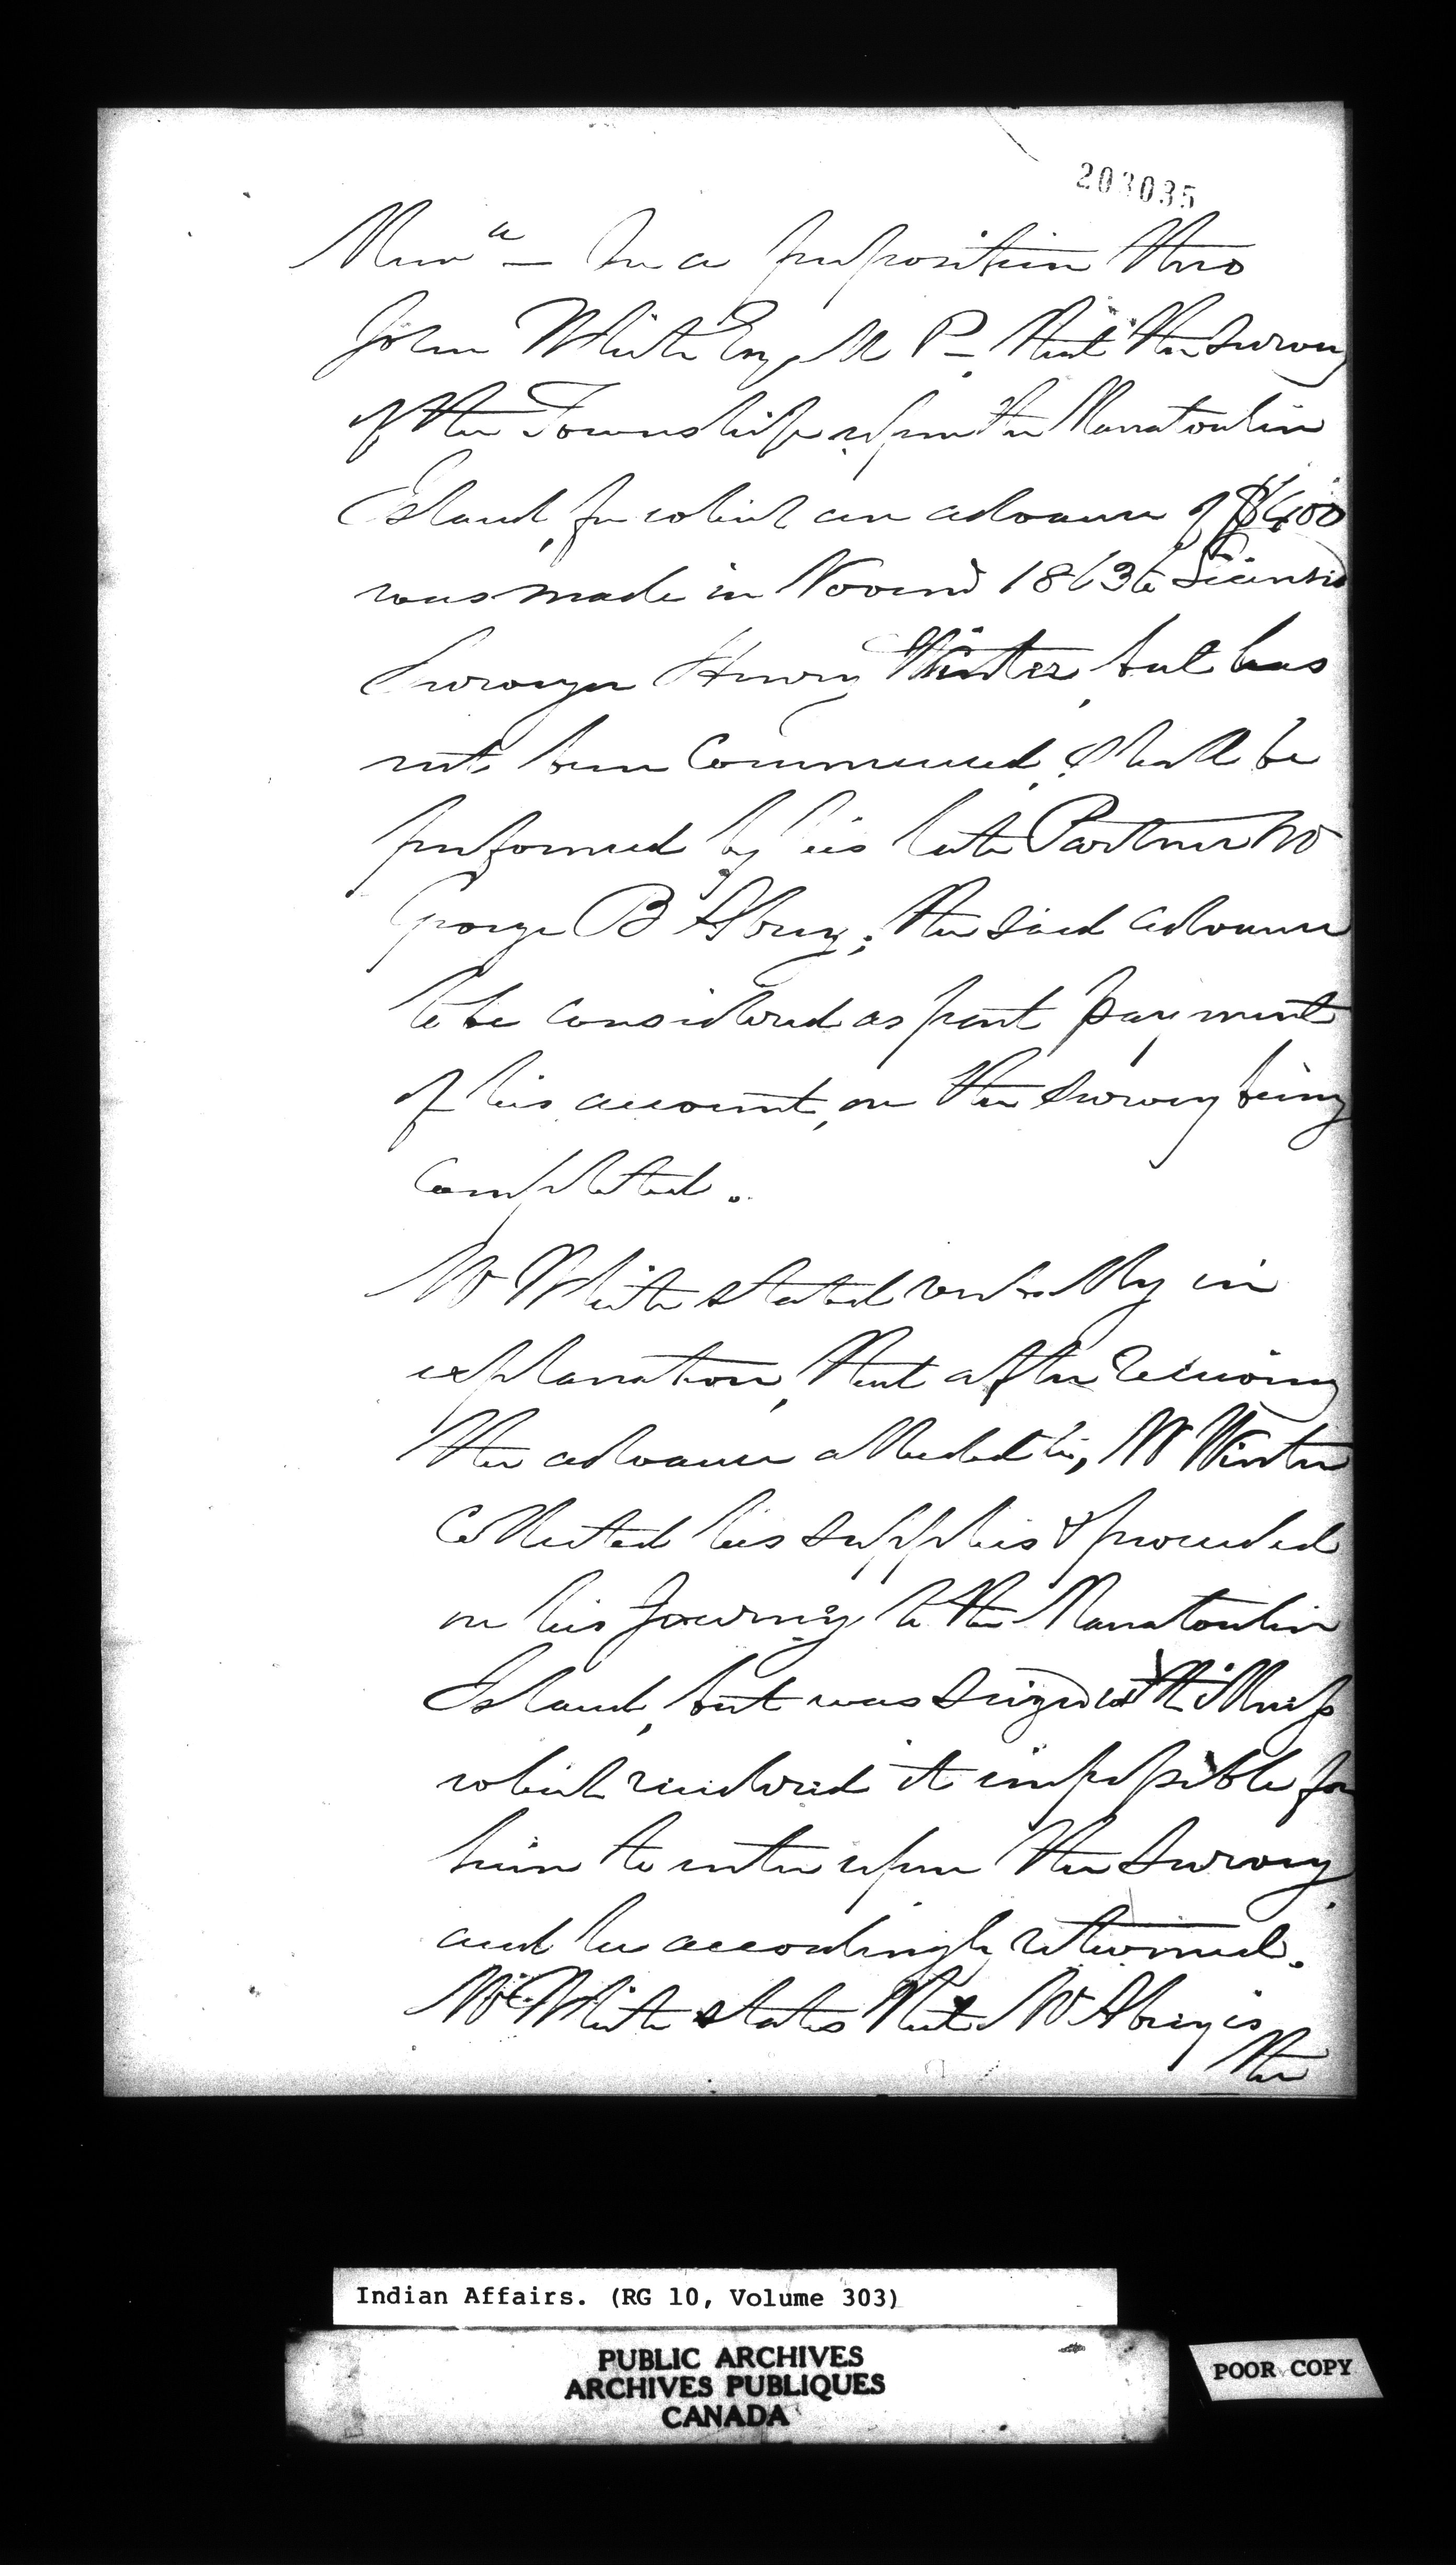 203035
Mem^a — On a proposition thro
John White Esq, M P — that the Survey
of the Township upon the Manatoulin
Island, for which an advance of $400
was made in Novemr 1863 to Licensed
Surveyor Henry Winter, but has
not been Commenced, Shall be
performed by his late Partner Mr
George B Abrey; the said advance
to be considered as part payment
of his account, on the Survey being
Completed.
Mr White stated verbally in
explanation, that after receiving
the advance alluded to, Mr Winter
Collected his supplies & proceeded
on his Journey to the Manatoulin
Island, but was Seized with illness
which rendered it impossible for
him to enter upon the Survey,
and he accordingly returned.
Mr White states that Mr Abrey is
the
Indian Affairs. (RG 10, Volume 303)
PUBLIC ARCHIVES
ARCHIVES PUBLIQUES
CANADA
POOR COPY